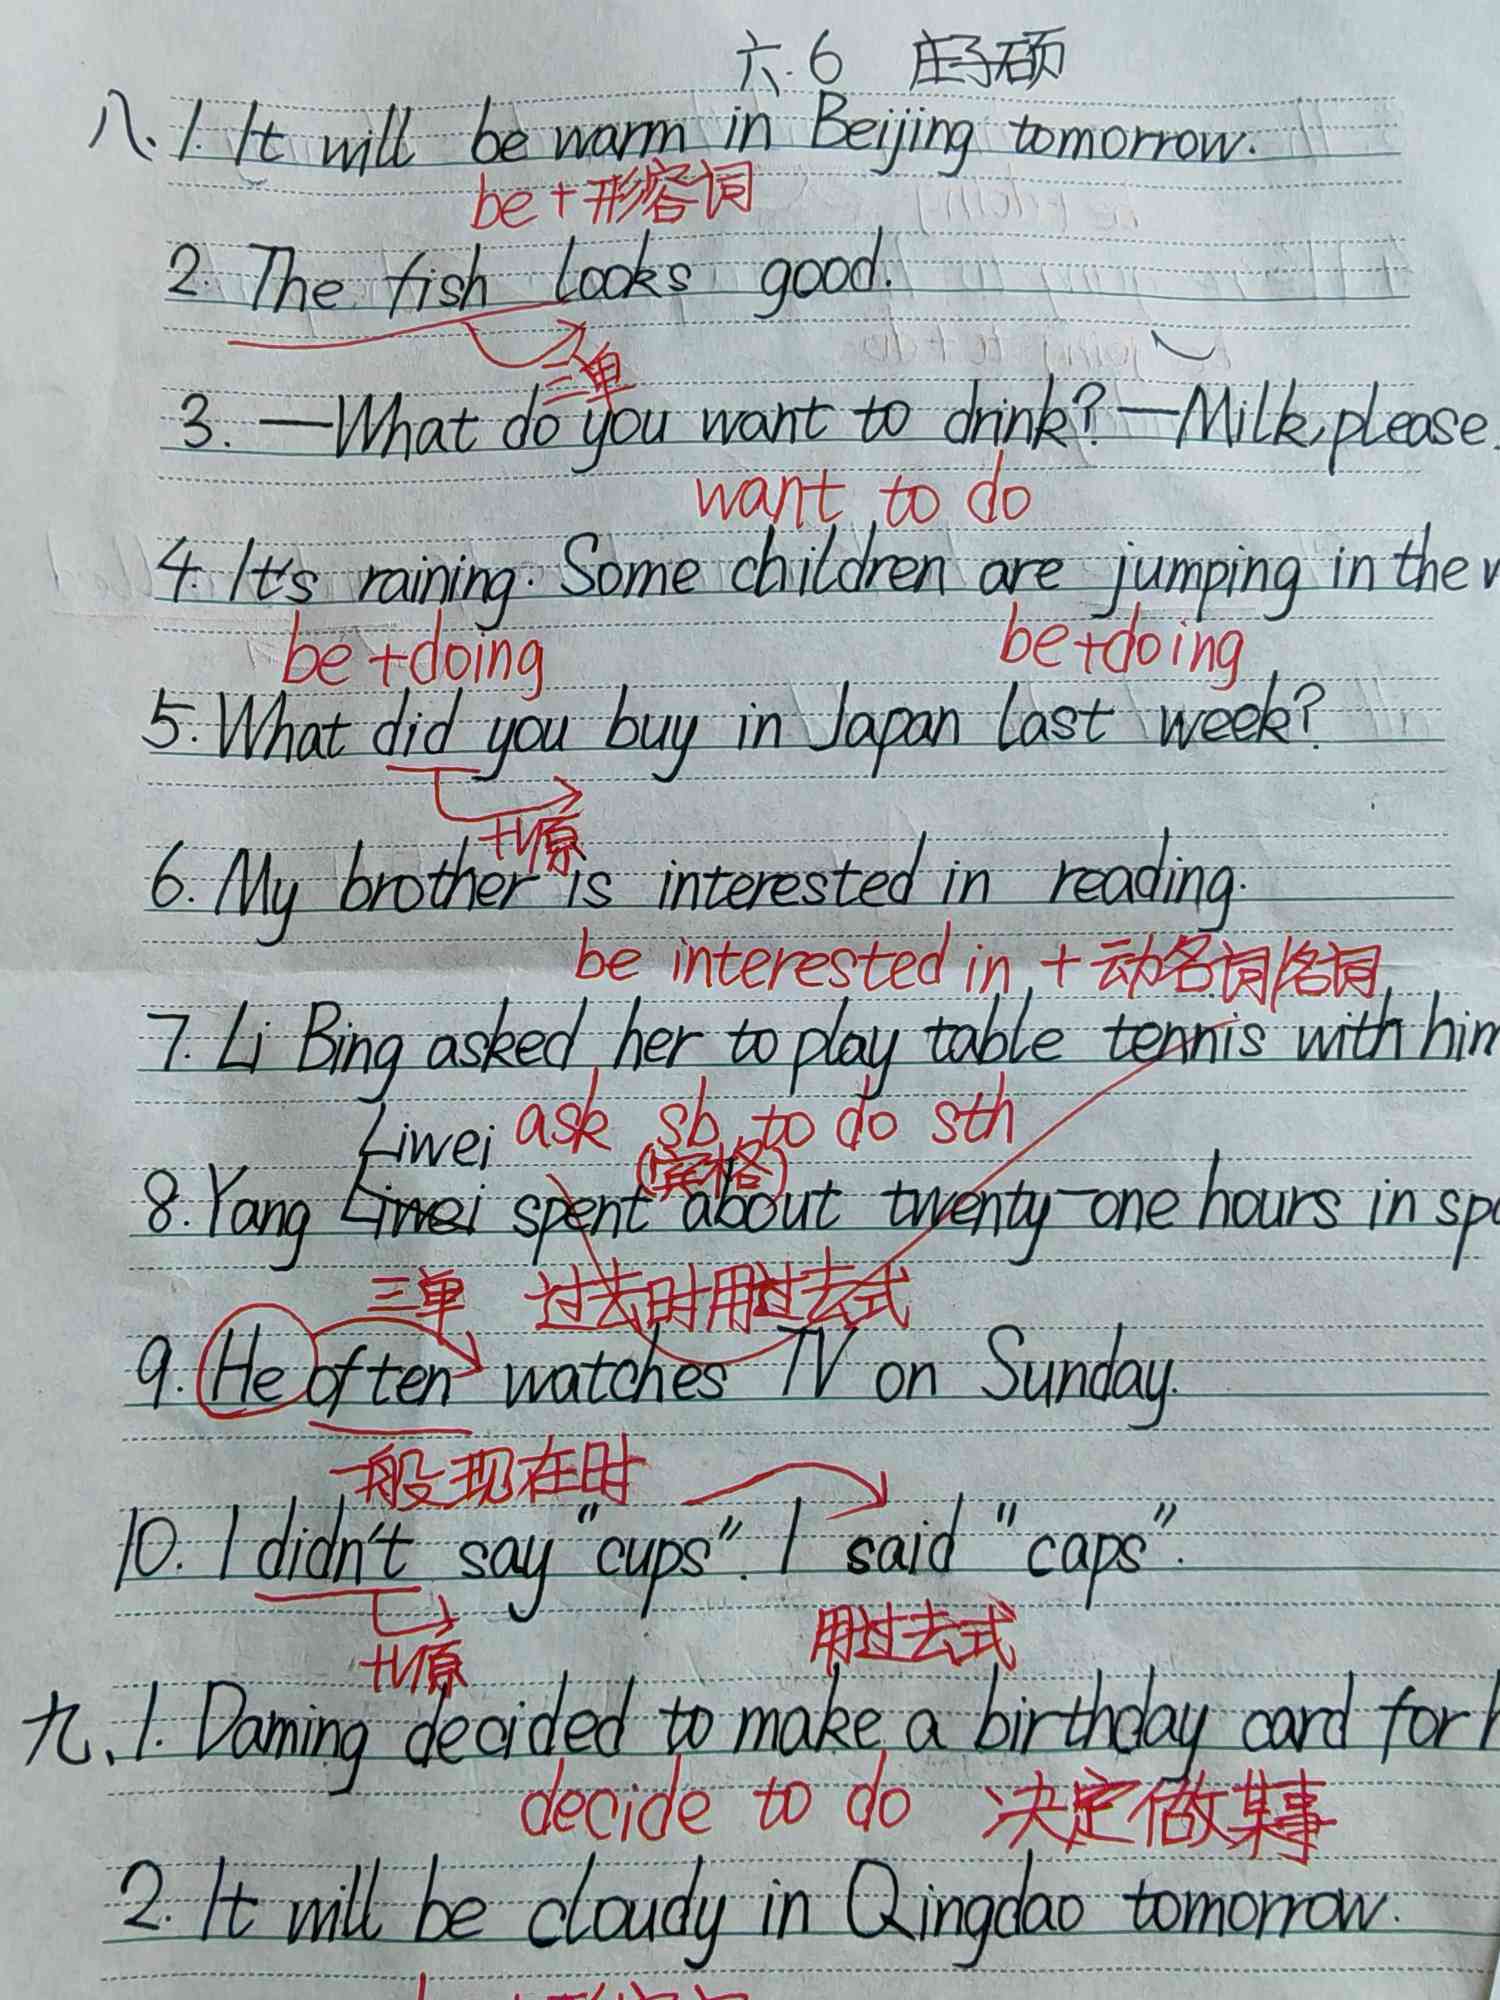 六.6 庄子硕
八、1. It will be warm in Beijing tomorrow.
be+形容词
2. The fish looks good.
三单
3. —What do you want to drink? —Milk, please.
want to do
4. It's raining. Some children are jumping in the
be+doing be+doing
5. What did you buy in Japan last week?
+V原
6. My brother is interested in reading.
be interested in + 动名词/名词
7. Li Bing asked her to play table tennis with him
Liwei ask sb to do sth
(宾格)
8. Yang Liwei spent about twenty-one hours in
三单 过去时用过去式
9. He often watches TV on Sunday.
一般现在时
10. I didn't say "cups". I said "caps".
+V原 用过去式
九、1. Daming decided to make a birthday card for
decide to do 决定做某事
2. It will be cloudy in Qingdao tomorrow.